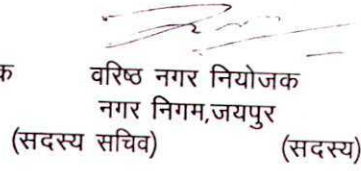 क वरिष्ठ नगर नियोजक
नगर निगम,जयपुर
(सदस्य सचिव) (सदस्य)